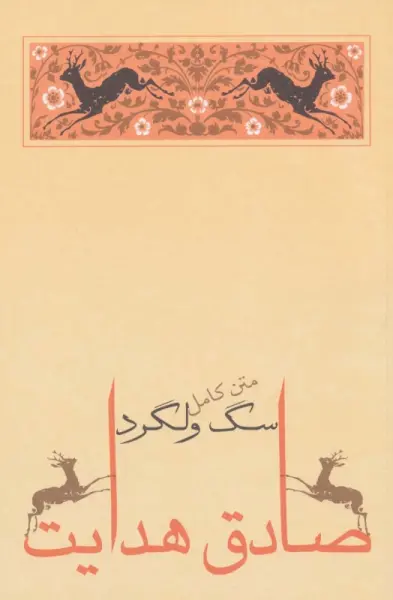 متن کامل
سگ ولگرد
صادق هدایت